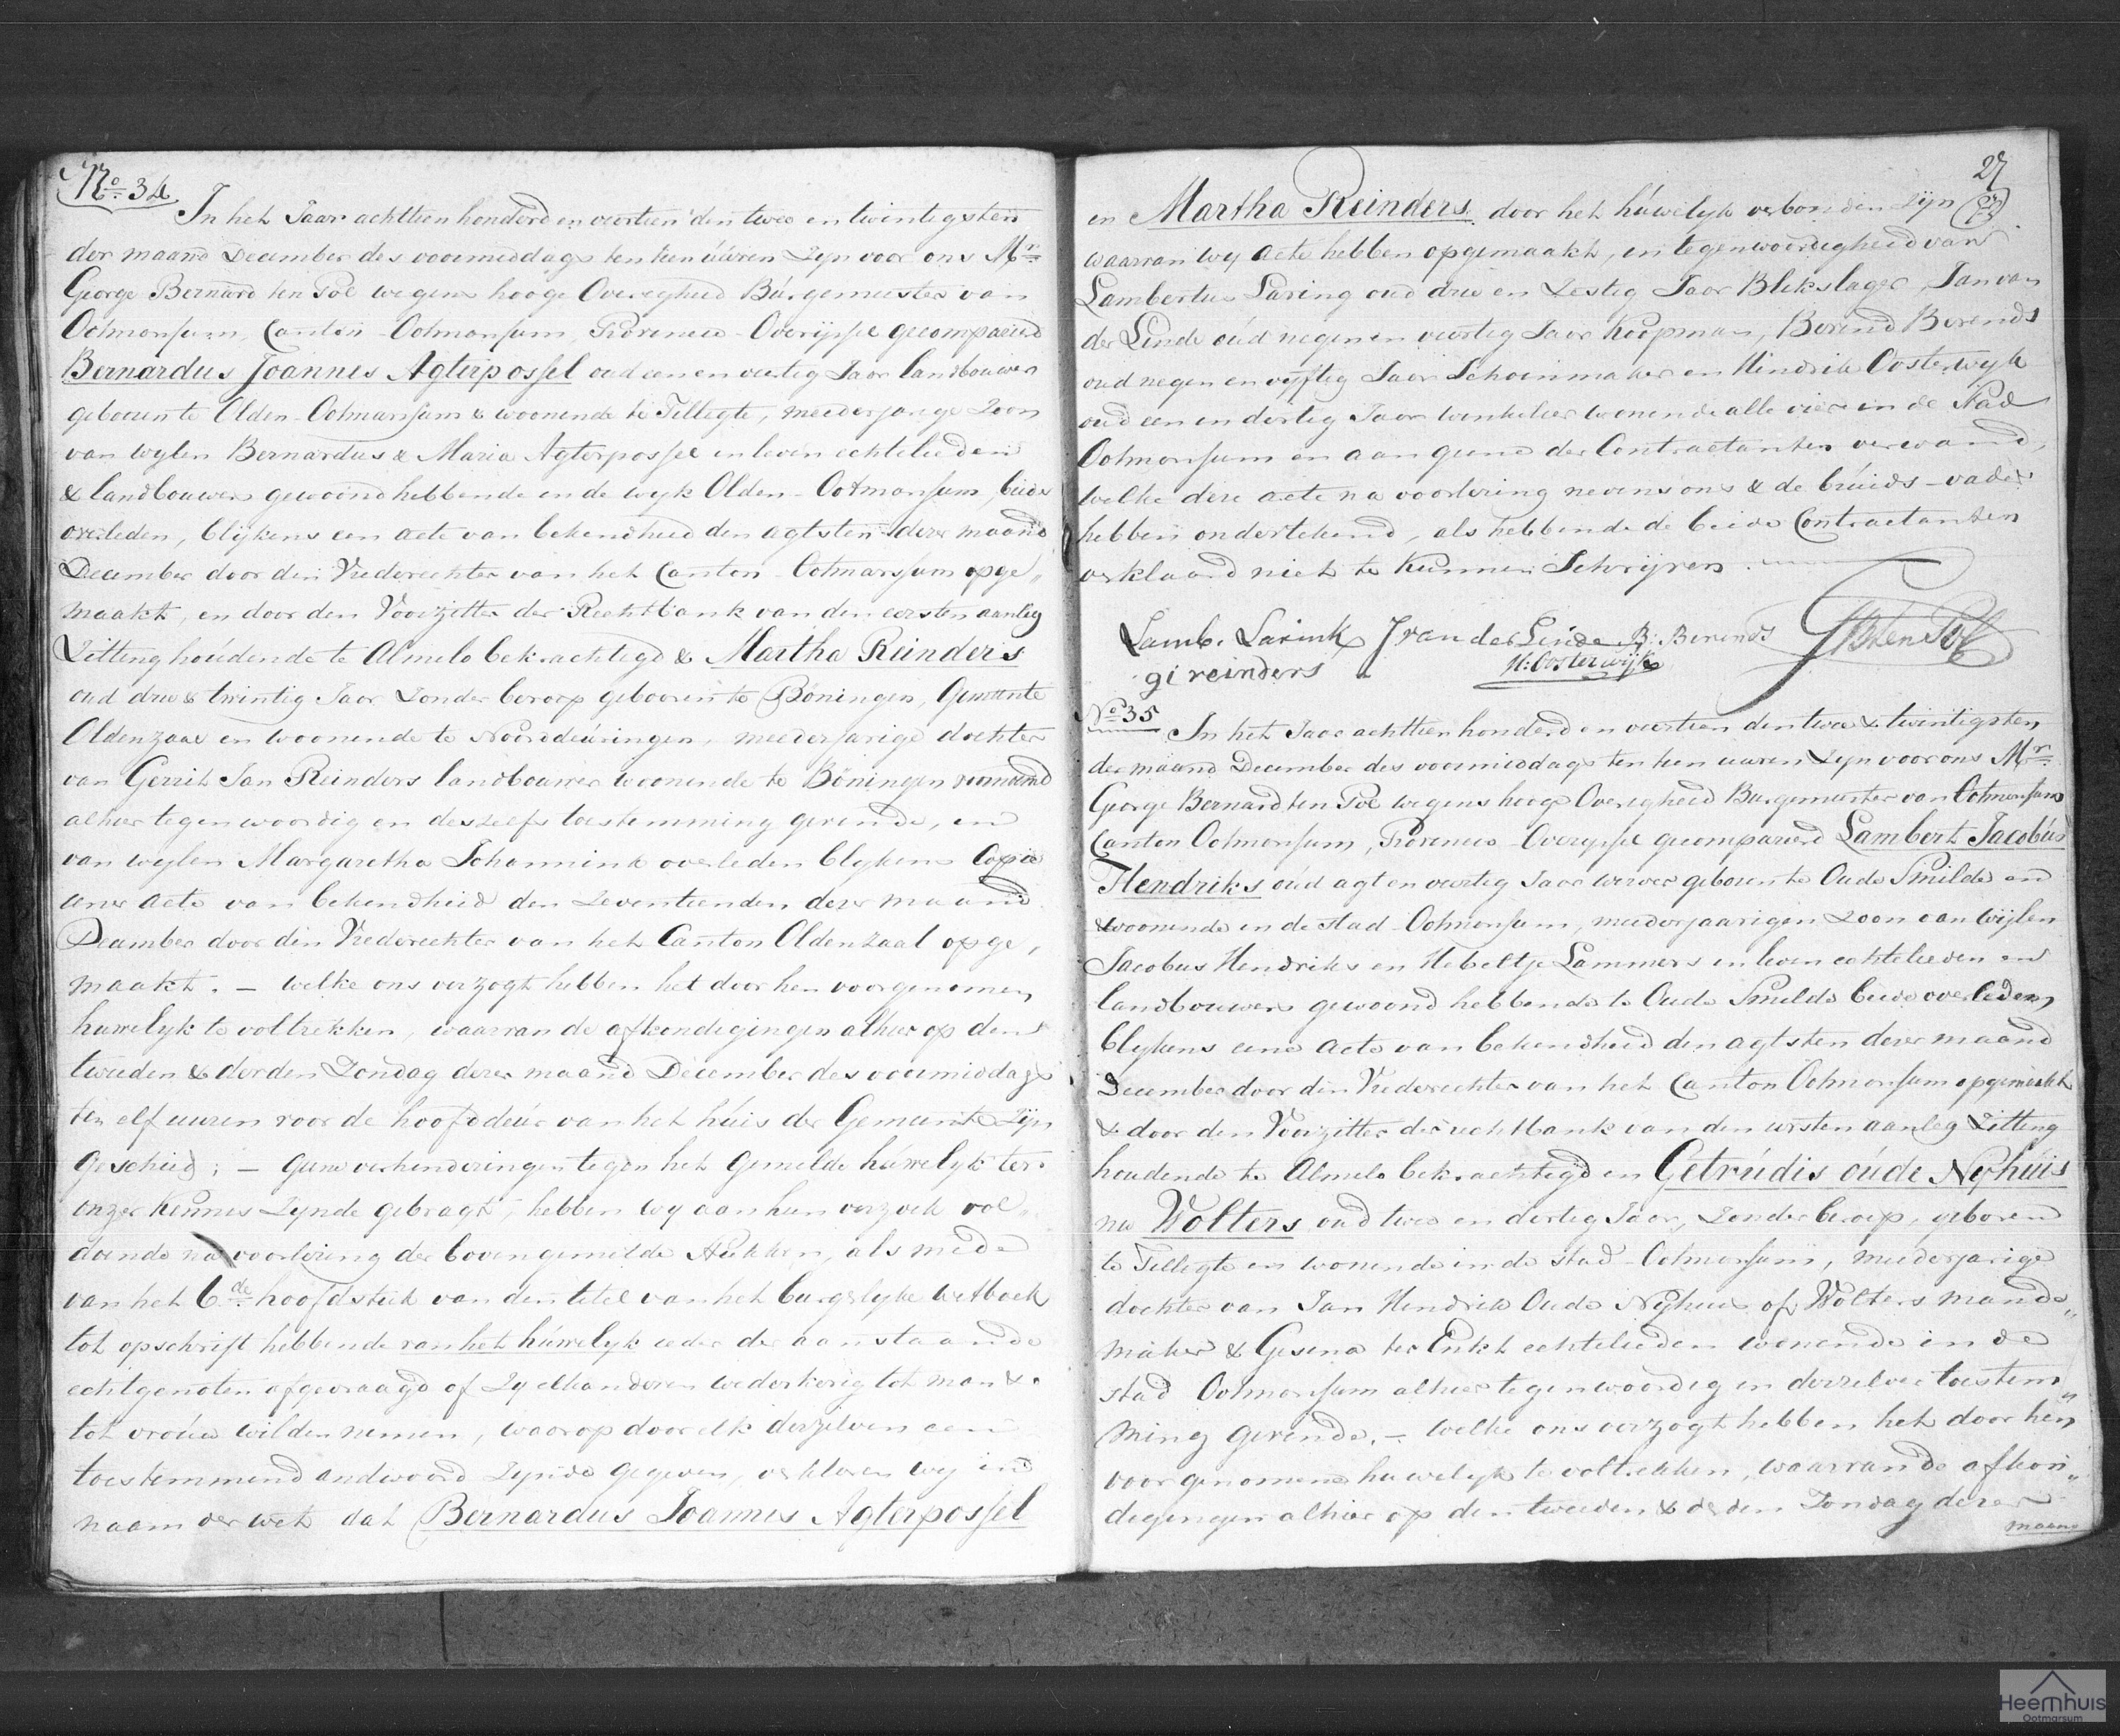 No. 34
In het Jaar achttien honderd en veertien den twee en twintigsten
der maand December des voormiddags ten tien uúren Zyn voor ons Mr.
George Bernard ten Pol wegens hooge Overigheid Búrgemeester van
Ootmarssum, Canton Ootmarssum, Provincie Overijssel gecompareerd
Bernardus Joannes Agterpossel oud een en veertig Jaar landbouwer
gebooren te Olden Ootmarssum & woonende te Tilligte, meederjarige Zoon
van wylen Bernardus & Maria Agterpossel in leven echtelieden
& landbouwers gewoond hebbende in de wyk Olden-Ootmarssum, beide
overleden, blijkens een acte van bekendheid den agtsten dezer maand
December door den Vrederechter van het Canton Ootmarssum opge„
maakt, en door den Voorzitter der Rechtbank van den eersten aanleg
Zitting hoúdende te Almelo bekrachtigd & Martha Reinders
oud drie & twintig Jaar Zonder beroep gebooren te Böningen, Gemeente
Oldenzaal en woonende te Noorddeúringen, meederjarige dochter
van Gerrit Jan Reinders landbouwer woonende te Böningen
alhier tegenwoordig en deszelfs toestemming gevende, en
van wylen Margaretha Schonnink overleden blykens Copie
ener acte van bekendheid den Zeventienden dezer maand
December door den Vrederechter van het Canton Oldenzaal opge,
maakt. – welke ons verzogt hebben het door hen voorgenomen
huwelyk te voltrekken, waarvan de afkondigingen alhier op den
tweeden & derden Zondag dezer maand December des voormiddags
ten elf uuren voor de hoofddeúr van het húis der Gemeente Zijn
Geschied; – geene verhinderingen tegen het Gemelde húwelyk ter
onzer Kennis Zynde gebragt, hebben wy aan hun verzoek vol„
doende na voorlezing der bovengemelde Stukken, als mede
van het 6de hoofdstuk van den titel van het burgerlyke wetboek
tot opschrift hebbende van het húwelyk ieder der aanstaande
echtgenoten afgevraagd of Zy elkanderen wederkerig tot man &
tot vroúw wilden nemen, waarop door elk derzelven een
toestemmend andwoord Zynde gegeven, verklaren wy in
naam der wet dat Bernardus Joannes Agterpossel
27
en Martha Reinders door het húwelyk verbonden Zijn
waarvan wy acte hebben opgemaakt, in tegenwoordigheid van
Lambertus Laring oud drie en Zestig Jaar Blekslager, Jan van
der Linde oúd negen en veertig Jaar Koopman, Berend Berends
oud negen en vyftig Jaar Schoenmaker en Hindrik Oosterwyk
oud een en dertig Jaar winkelier wonende alle vier in de Stad
Ootmarssum en aan geene der Contractanten verwand,
welke deze acte na voorlezing nevens ons & de brúids-vader
hebben ondertekend, als hebbende de beide Contractanten
verklaard niet te Kunnen Schrijven.
Lamb. Larink J van der Linde B: Berends GB ten Pol
gi reinders H: Oosterwijk
No. 35
In het Jaar achttien honderd en veertien den twee & twintigsten
der maand December des voormiddags ten tien uuren Zyn voor ons Mr.
George Bernard ten Pol wegens hooge Overigheid Burgemeester van Ootmarssum
Canton Ootmarssum, Provincie Overyssel gecompareerd Lambert Jacobús
Hendriks oúd agt en veertig Jaar wever gebooren te Oude Smilde en
woonende in de stad Ootmarssum, meederjaarigen Zoon van wijlen
Jacobus Hendriks en Hebeltje Lammers in leven echtelieden en
landbouwers gewoond hebbende te Oude Smilde beide overleden,
blykens eene acte van bekendheid den agtsten dezer maand
December door den Vrederechter van het Canton Ootmarssum opgemaakt
& door den Voorzitter der rechtbank van den eersten aanleg Zitting
houdende te Almelo bekrachtigd en Getrúdis oúde Nyhúis
nu Wolters oud twee en dertig Jaar, Zonder beroep, geboren
te Tilligte en wonende in de stad Ootmarssum, meederjarige
dochter van Jan Hendrik Oude Nyhuis of Wolters mande„
maker & Gesina ter Enkt echtelieden wonende in de
stad Ootmarssum alhier tegenwoordig en derzelver toestem„
ming gevende. – welke ons verzogt hebben het door hen
voorgenomene huwelyk te voltrekken, waarvan de afkon„
digingen alhier op den tweeden & derden Zondag dezer
maand
Heemhuis
Ootmarsum